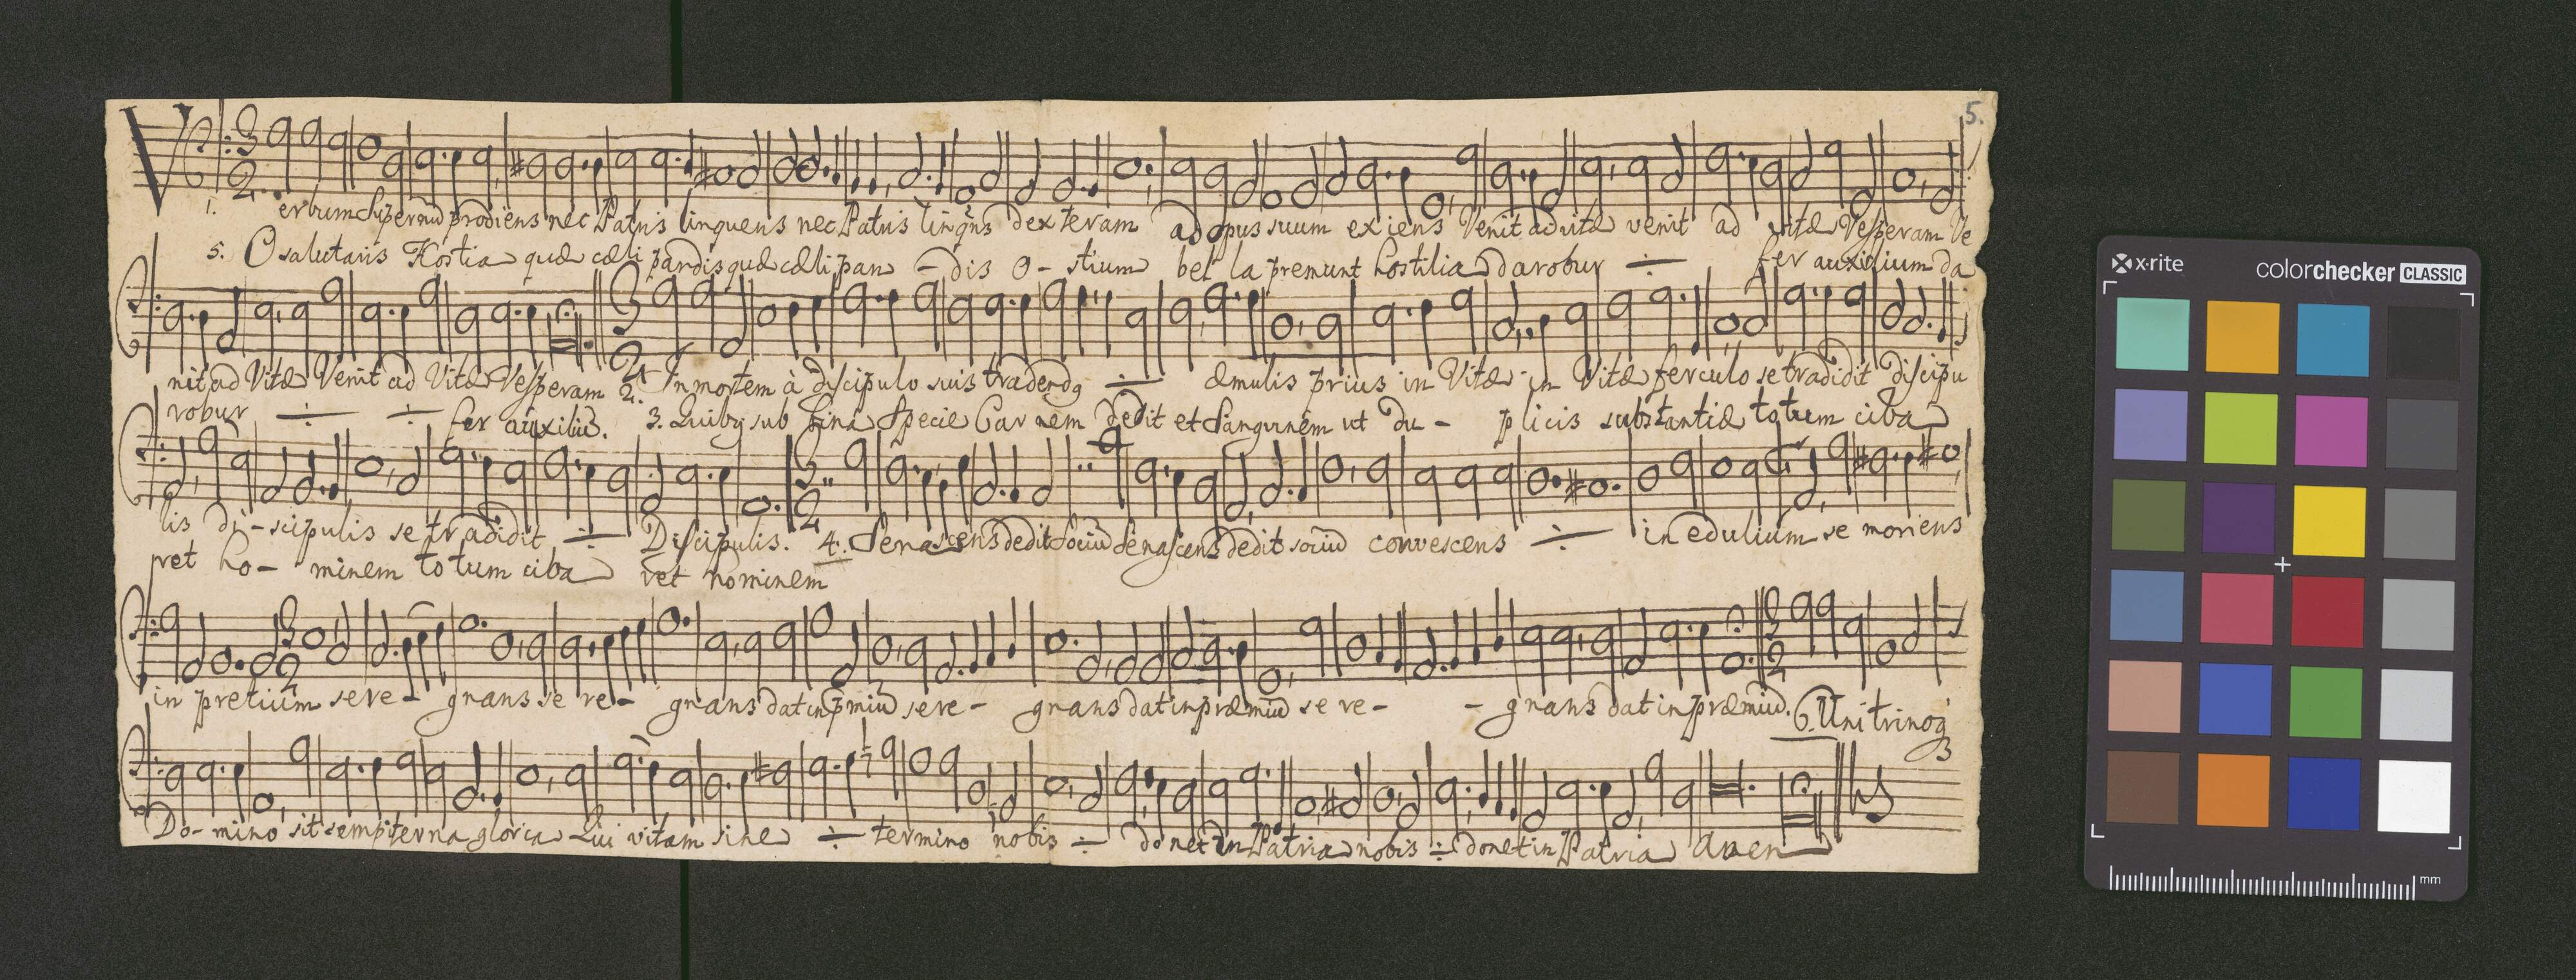 5.
V
1. erbum Supernū prodiens nec Patris linquens nec Patris linqns dexteram ad opus suum exiens Venit ad vitæ venit ad vitæ Vesperam Ve
5. O salutaris Hostia quæ cœli pandis quæ cœli pan - dis O - stium bel la premunt hostilia da robur ÷ fer auxilium da
nit ad Vitæ Venit ad Vitæ Vesperam 2. In mortem à discipulo suis tradendg ÷ æmulis prius in Vitæ in Vitæ ferculo se tradidit discipu
robur ÷ ÷ fer auxiliū. 3. Quibg sub bina Specie Carnem dedit et Sanguinem ut du - plicis substantiæ totum ciba
lis di - scipulis se tradidit ÷ Discipulis. 4. Se nascens dedit Sociū Se nascens dedit sociū convescens ÷ in edulium se moriens
ret ho - minem totum ciba ret hominem
in pretium se re - gnans se re - gnans dat in pmiū se re - gnans dat in præmiū se re - - gnans dat in præmiū. 6. Uni trinoq
Do - mino sit sempiterna gloria Qui vitam sine ÷ termino nobis ÷ donet in Patria nobis ÷ donet in Patria Amen
x·rite colorchecker CLASSIC
mm